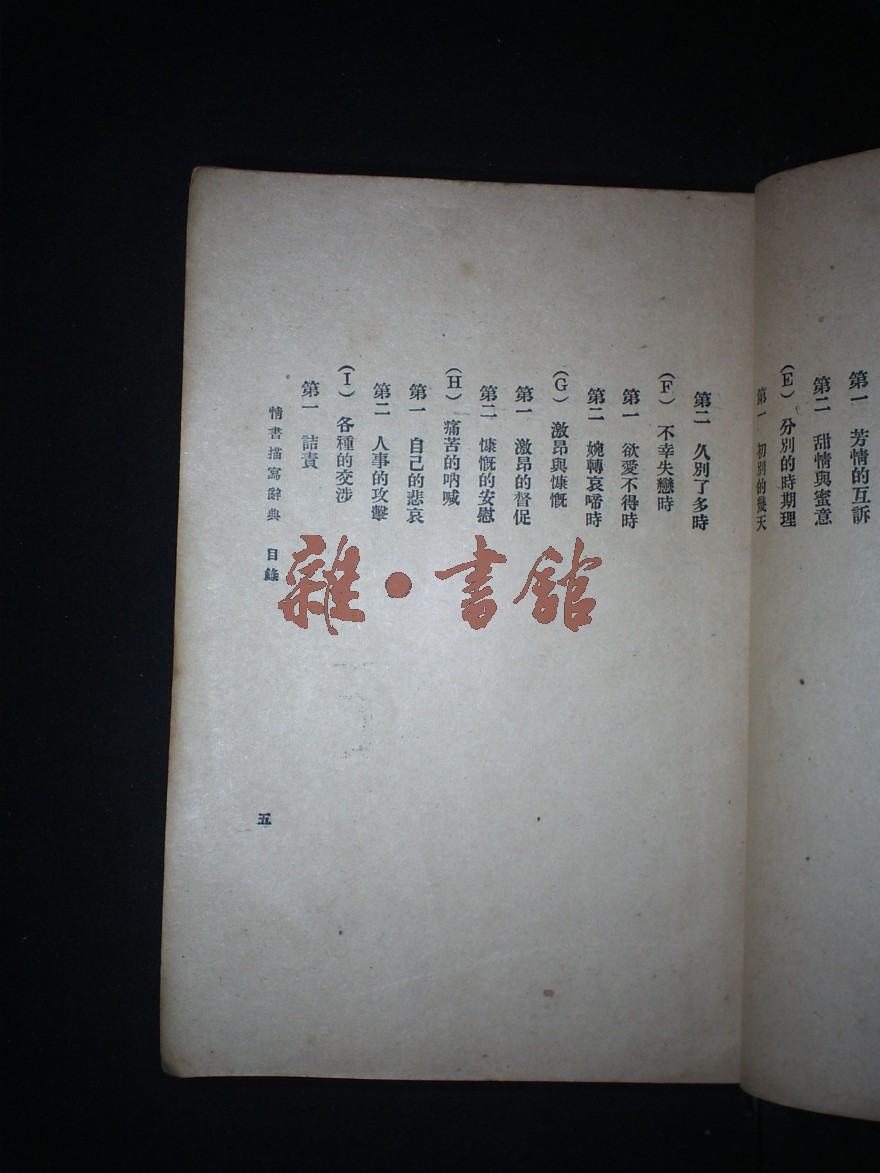 第一　芳情的互訴
第二　甜情與蜜意
(E)　分別的時期理
第一　初別的幾天
第二　久別了多時
(F)　不幸失戀時
第一　欲愛不得時
第二　婉轉哀啼時
(G)　激昂與慷慨
第一　激昂的督促
第二　慷慨的安慰
(H)　痛苦的吶喊
第一　自己的悲哀
第二　人事的攻擊
(I)　各種的交涉
第一　詰責
情書描寫辭典　目錄
五
雜·書館